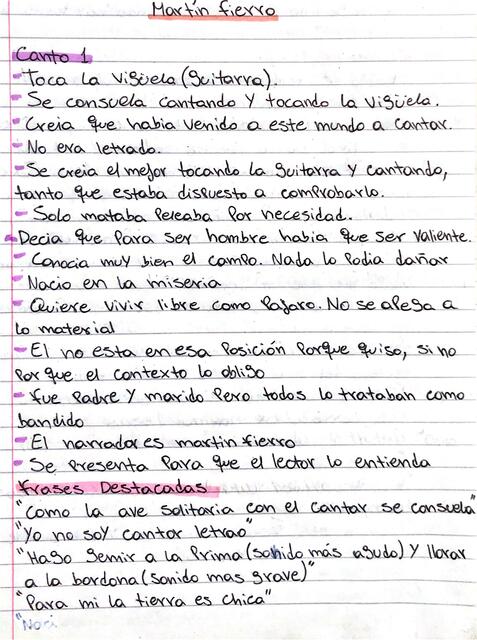 Martín fierro
Canto 1
- Toca la vigüela (guitarra).
- Se consuela cantando y tocando la vigüela.
- Creia que habia venido a este mundo a cantar.
- No era letrado.
- Se creia el mejor tocando la guitarra y cantando,
tanto que estaba dispuesto a comprobarlo.
- Solo mataba peleaba por necesidad.
- Decia que para ser hombre habia que ser valiente.
- Conocia muy bien el campo. Nada lo podia dañar
- Nacio en la miseria
- Quiere vivir libre como pajaro. No se apega a
lo material
- El no esta en esa posición porque quiso, si no
por que el contexto lo obligo
- fue padre y marido pero todos lo trataban como
bandido
- El narrador es martin fierro
- Se presenta para que el lector lo entienda
frases Destacadas
"Como la ave solitaria con el cantar se consuela"
"Yo no soy cantor letrao"
"Hago gemir a la prima (sonido más agudo) y llorar
a la bordona (sonido mas grave)"
"Para mi la tierra es chica"
"Naci